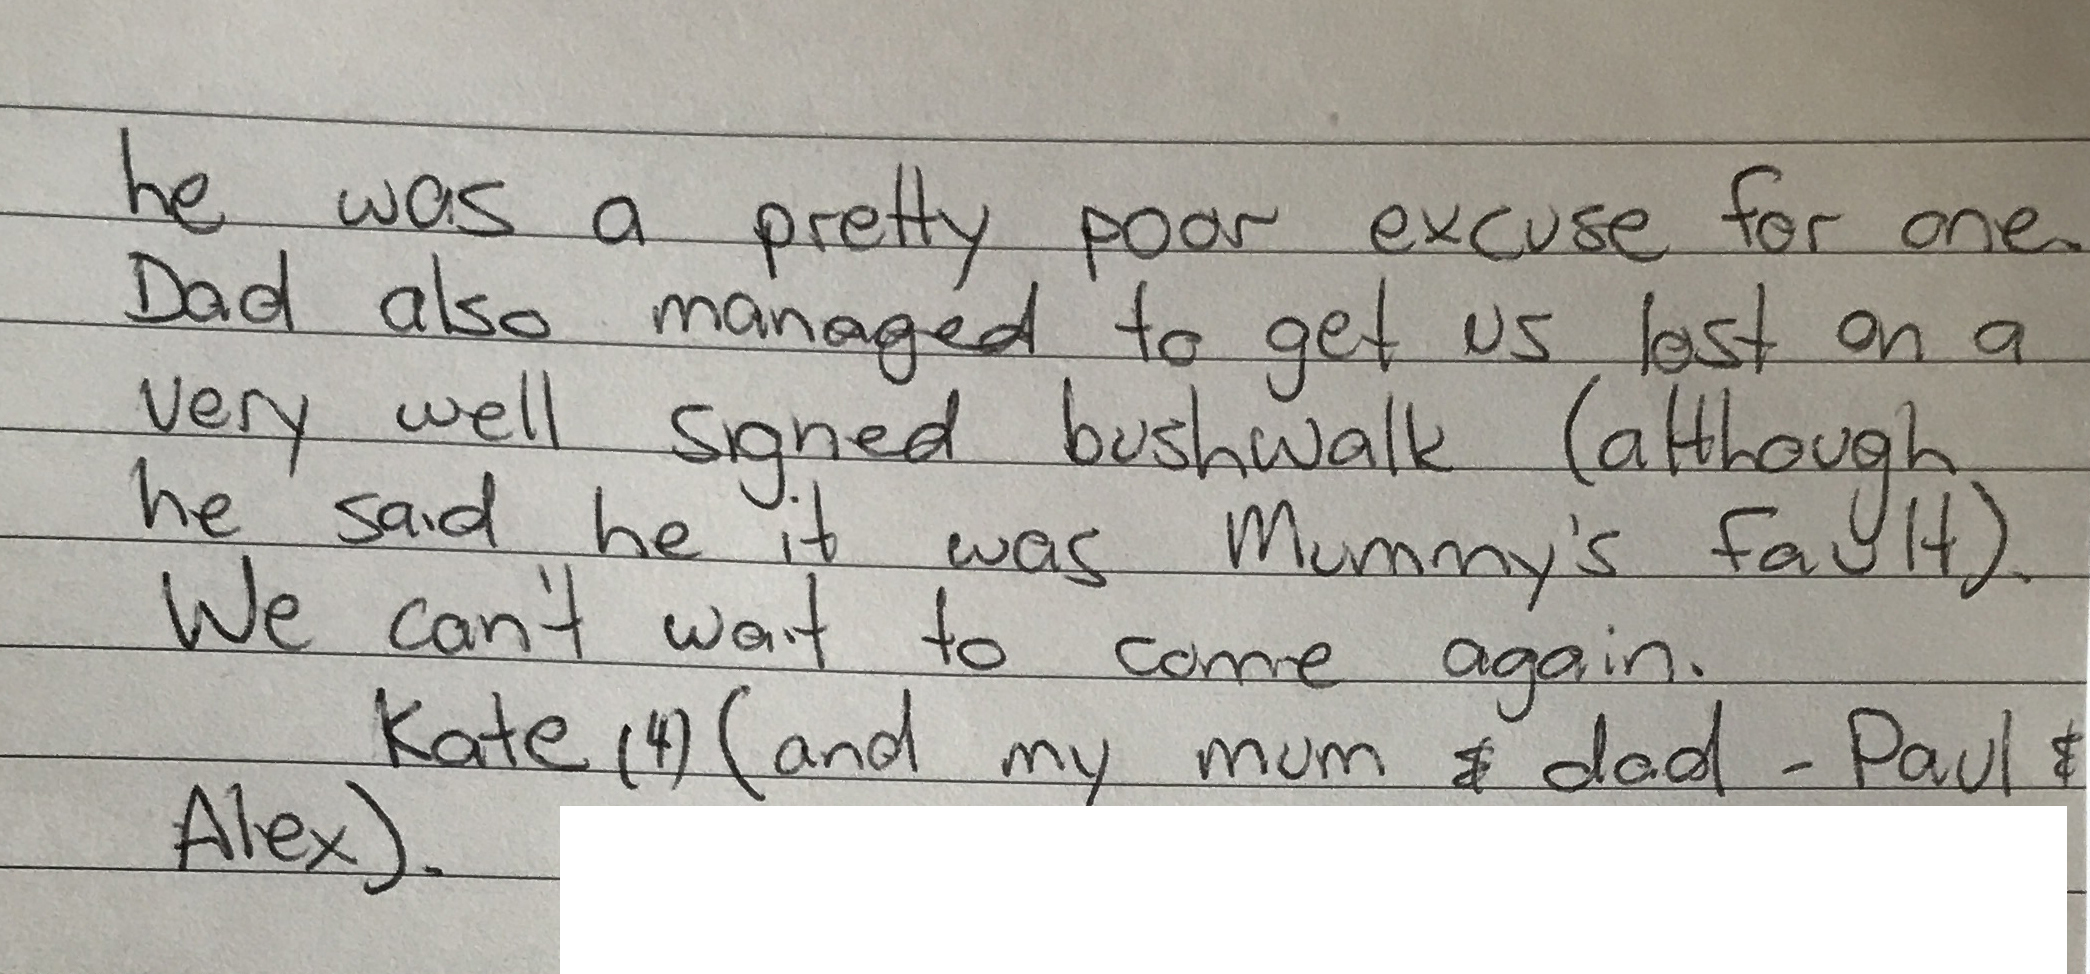 he was a pretty poor excuse for one.
Dad also managed to get us lost on a
very well signed bushwalk (although
he said he it was Mummy's fault).
We can't wait to come again.
Kate (4) (and my mum & dad - Paul &
Alex).